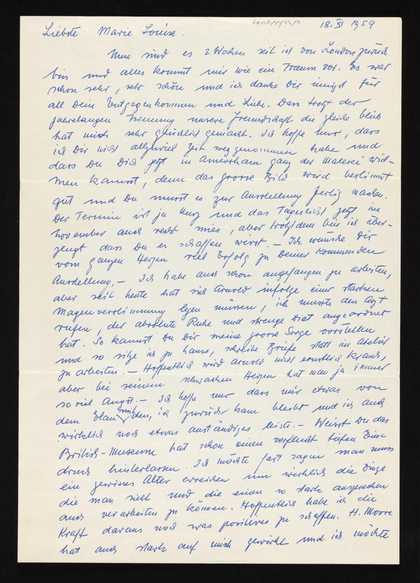 18. XI 1959
Liebste Marie Louise.
Nun sind es 2 Wochen seit ich von London zurück
bin und alles kommt mir wie ein Traum vor. Es war
schon sehr, sehr schön und ich danke Dir innigst für
all Dein Entgegenkommen und Liebe. Dass trotz der
jahrelangen Trennung unsere Freundschaft die gleiche blieb
hat mich sehr glücklich gemacht. Ich hoffe nur, dass
ich Dir nicht allzuviel Zeit weggenommen habe und
dass Du Dich jetzt in Amersham ganz der Malerei wid-
men kannst, denn das grosse Bild wird bestimmt
gut und Du musst es zur Ausstellung fertig machen.
Der Termin ist ja kurz und das Tageslicht jetzt im
November auch recht mies, aber trotzdem bin ich über-
zeugt dass Du es schaffen wirst. – Ich wünsche Dir
vom ganzen Herzen viel Erfolg zu Deiner kommenden
Ausstellung. – Ich habe auch schon angefangen zu arbeiten,
aber seit heute hat sich Arnold infolge einer starken
Magenverstimmung legen müssen, ich musste den Arzt
rufen, der absolute Ruhe und strenge Diät angeordnet
hat. So kannst Du Dir meine grosse Sorge vorstellen
und so sitze ich zu Hause, schreibe Briefe statt im Atelier
zu arbeiten. – Hoffentlich wird Arnold nicht ernstlich krank,
aber bei seinem schwachen Herzen hat man ja immer
so viel Angst. – Ich hoffe nur dass mir etwas von
dem Elan den, ich zurück kam bleibt und ich auch
wirklich noch etwas anständiges leiste. – Weisst Du das
British-Museum hat schon einen verflixt tiefen Ein-
druck hinterlassen. Ich möchte fast sagen man muss
ein gewisses Alter erreichen um wirklich die Dinge
die man sieht und die einen so stark ansprechen
auch verarbeiten zu können. Hoffentlich habe ich die
Kraft daraus noch was positives zu schaffen. H. Moore
hat auch stark auf mich gewirkt und ich möchte